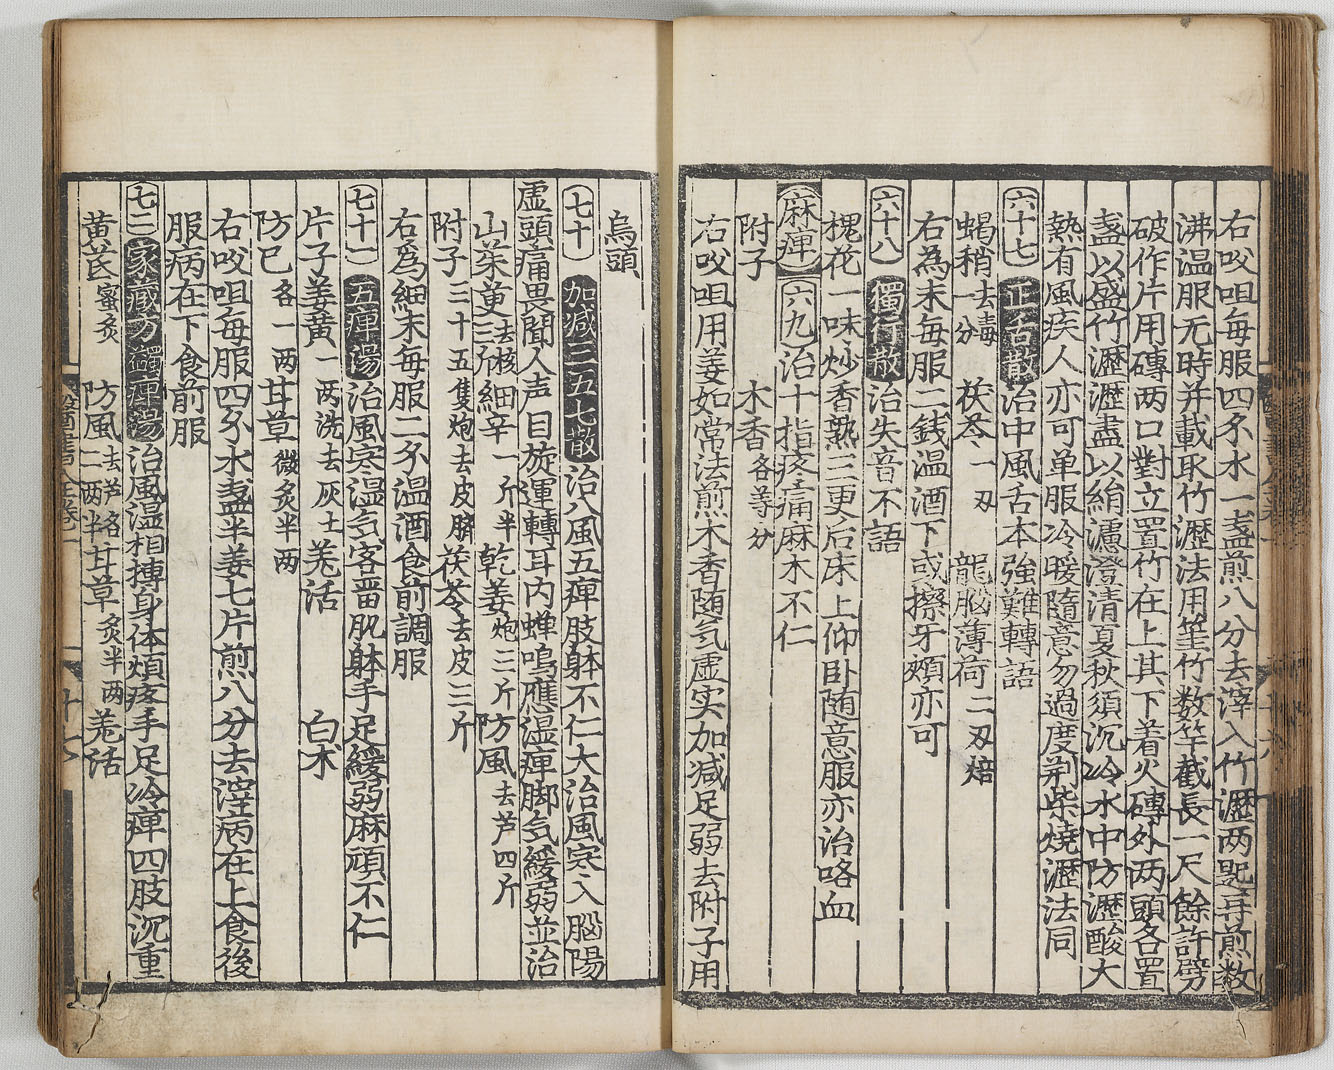 右㕮咀每服四分水一盞煎八分去滓入竹瀝两匙再煎数
沸温服无時并載取竹瀝法用筀竹数竿截長一尺餘許劈
破作片用磚两口對立置竹在上其下着火磚外两頭各置
盞以盛竹瀝瀝盡以絹濾澄清夏秋須沉冷水中防瀝酸大
熱有風疾人亦可单服冷暖隨意勿過度荆柴燒瀝法同
六十七 正舌散 治中風舌本強難轉語
蝎稍去毒一分 茯苓一刄 龍脳薄荷二刄焙
右為末每服二銭温酒下或擦牙頰亦可
六十八 獨行散 治失音不語
槐花一味炒香熟三更后床上仰卧随意服亦治咯血
麻痺 六九 治十指疼痛麻木不仁
附子 木香各等分
右㕮咀用姜如常法煎木香随気虚实加减足弱去附子用
烏頭
七十 加减三五七散 治八風五痺肢躰不仁大治風寒入腦陽
虚頭痛畏聞人声目旋運轉耳内蝉鳴應温痺脚気緩弱並治
山茱萸去核三斤 細辛一斤半 乾姜炮三斤 防風去芦四斤
附子三十五隻炮去皮臍 茯苓去皮三斤
右爲細末每服二分温酒食前調服
七十一 五痺湯 治風寒温気客畱肌躰手足緩弱麻頑不仁
片子姜黃一两洗去灰土 羌活 白术
防已各一两 甘草微炙半两
右㕮咀每服四分水盞半姜七片煎八分去滓病在上食後
服病在下食前服
七二 家藏方蠲痺湯 治風湿相摶身体煩疼手足冷痺四肢沉重
黄芪蜜炙 防風去芦各二两半 甘草炙半两 羌活